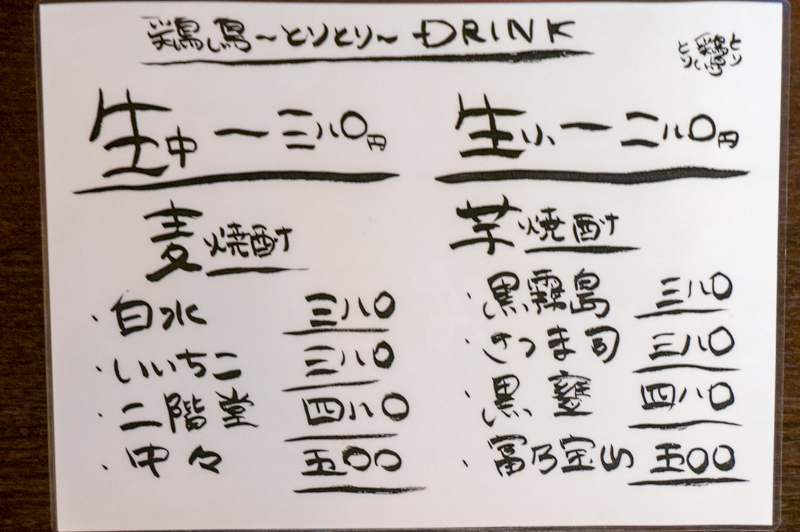 鶏鳥～とりとり～ DRINK
生中 ー 三八〇円
生小 ー 二八〇円
麦焼酎
・白水 三八〇
・いいちこ 三八〇
・二階堂 四八〇
・中々 五〇〇
芋焼酎
・黒霧島 三八〇
・さつま司 三八〇
・黒甕 四八〇
・富乃宝山 五〇〇